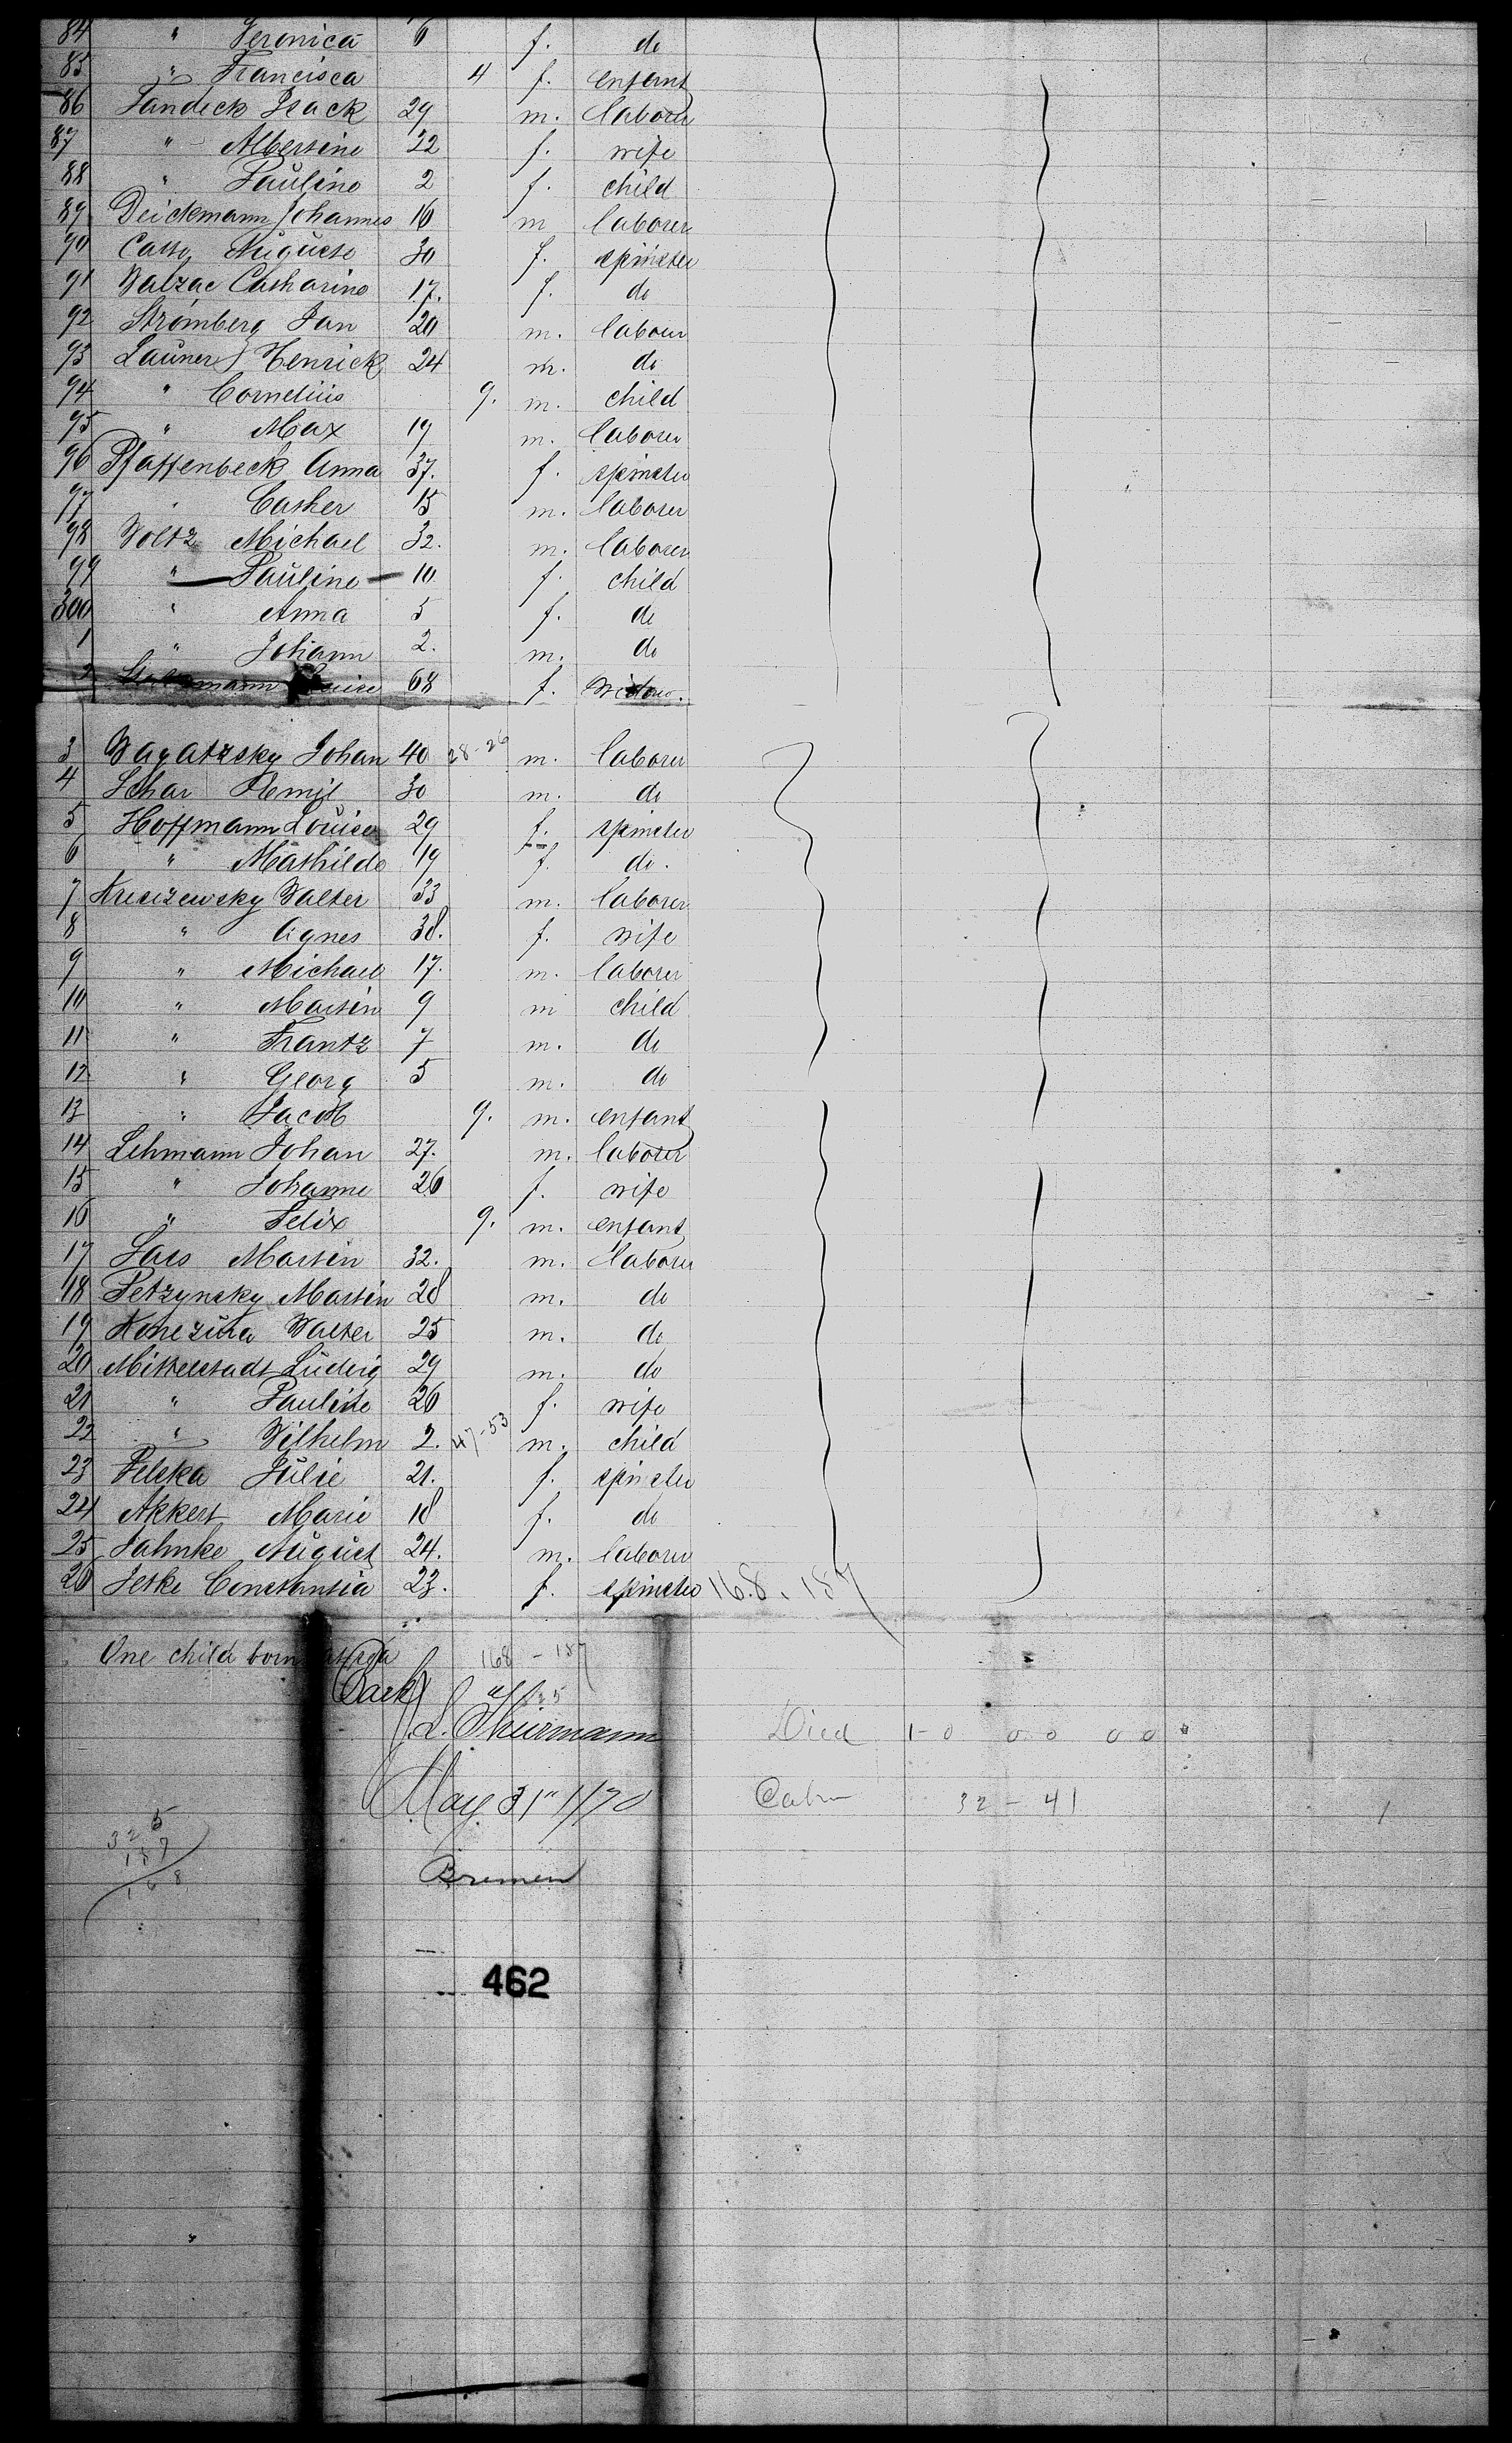 84 " Veronica 6 f. do
85 " Francisca 4 f. enfant
86 Jandeck Isack 29 m. laborer
87 " Albertine 22 f. wife
88 " Pauline 2 f. child
89 Deickmann Johannes 16 m laborer
90 Auguste 30 f. spinster
91 Walzac Catharine 17. f. do
92 Strömberg Jan 20 m. labour
93 Launer Henrick 24 m. do
94 " Cornelius 9. m. child
95 " Max 19 m. laborer
96 Pfaffenbeck Anna 37. f. spinster
97 " Casher 15 m. laborer
98 Woltz Michael 32. m. laborer
99 " Pauline 10. f. child
300 " Anna 5 f. do
1 " Johann 2. m. do
2 Louise 68 f. widow.
3 Wagatzsky Johan 40 28-26 m. laborer
4 Schar 30 m. do
5 Hoffmann Louise 29 f. spinster
6 " Mathilde 19 f. do.
7 Walter 33 m. laborer
8 " Agnes 38. f. wife
9 " Michael 17. m. laborer
10 " Martin 9 m child
11 " Frantz 7 m. do
12 " Georg 5 m. do
13 " Jacob 9. m. enfant
14 Lehmann Johan 27. m. laborer
15 " Johanne 26 f. wife
16 " Felix 9. m. enfant
17 Martin 32. m. laborer
18 Petzynsky Martin 28 m. do
19 Walter 25 m. do
20 Mittelstadt Ludwig 29 m. do
21 " Pauline 26 f. wife
22 " Wilhelm 2. 47-53 m. child
23 Pelska Julie 21. f. spinster
24 Akkert Marie 18 f. do
25 Jahnke August 24. m. laborer
26 Jeske Constantia 23. f. spinster 168. 187
One child born
168 - 187
L. Thürmann Died 1-0 0 0 0 0
May 31" 1870 Cabin 32 - 41 1
325
187
168
Bremen
462